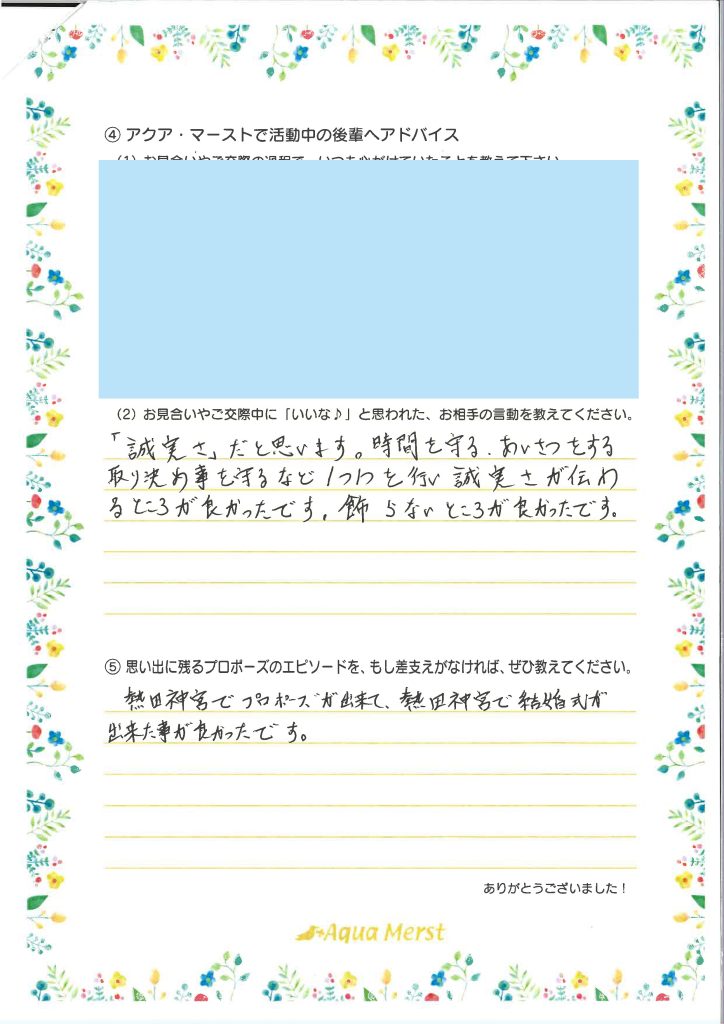 ④ アクア・マーストで活動中の後輩へアドバイス
(1) お見合いやご交際の過程で、いつも心がけていたことを教えて下さい。
(2) お見合いやご交際中に「いいな♪」と思われた、お相手の言動を教えてください。
「誠実さ」だと思います。時間を守る、あいさつをする
取り決め事を守るなど1つ1つを行い誠実さが伝わ
るところが良かったです。飾らないところが良かったです。
⑤ 思い出に残るプロポーズのエピソードを、もし差支えがなければ、ぜひ教えてください。
熱田神宮でプロポーズが出来て、熱田神宮で結婚式が
出来た事が良かったです。
ありがとうございました！
Aqua Merst